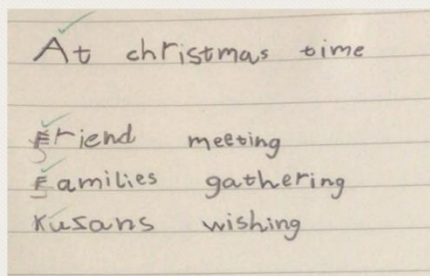 At christmas time
Friend meeting
Families gathering
Kusans wishing